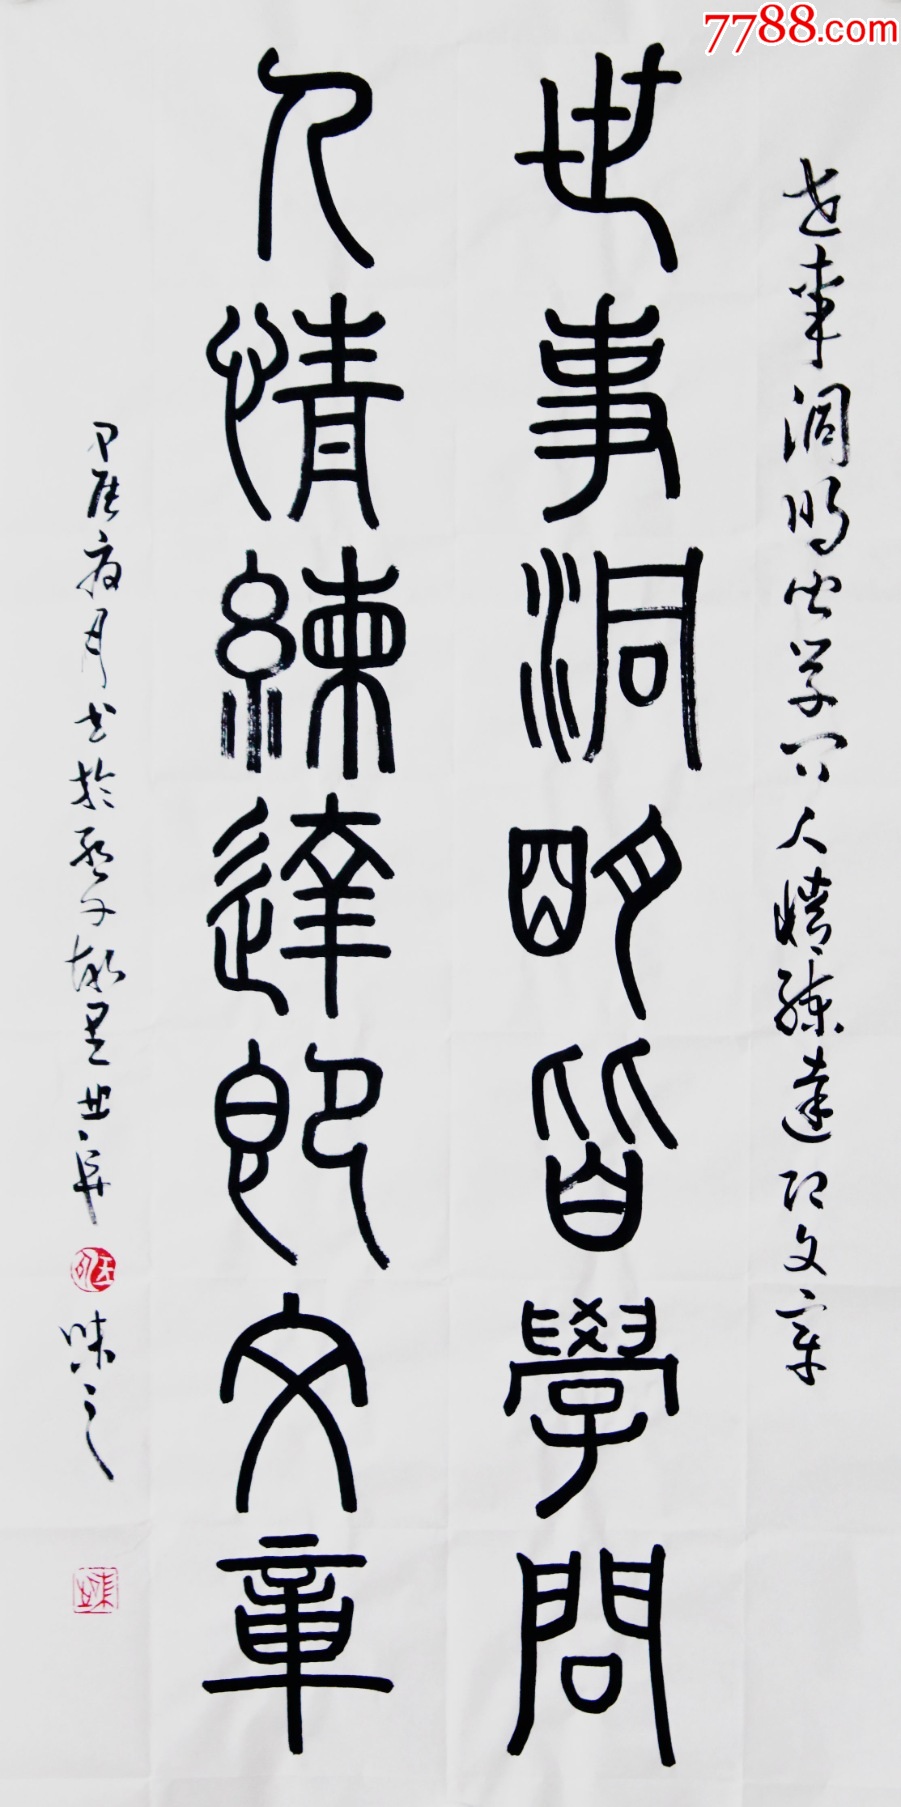 7788.com
世事洞明皆学问人情练達即文章
世事洞明皆學問
人情練達即文章
甲辰夜月书於孔子故里曲阜
味之